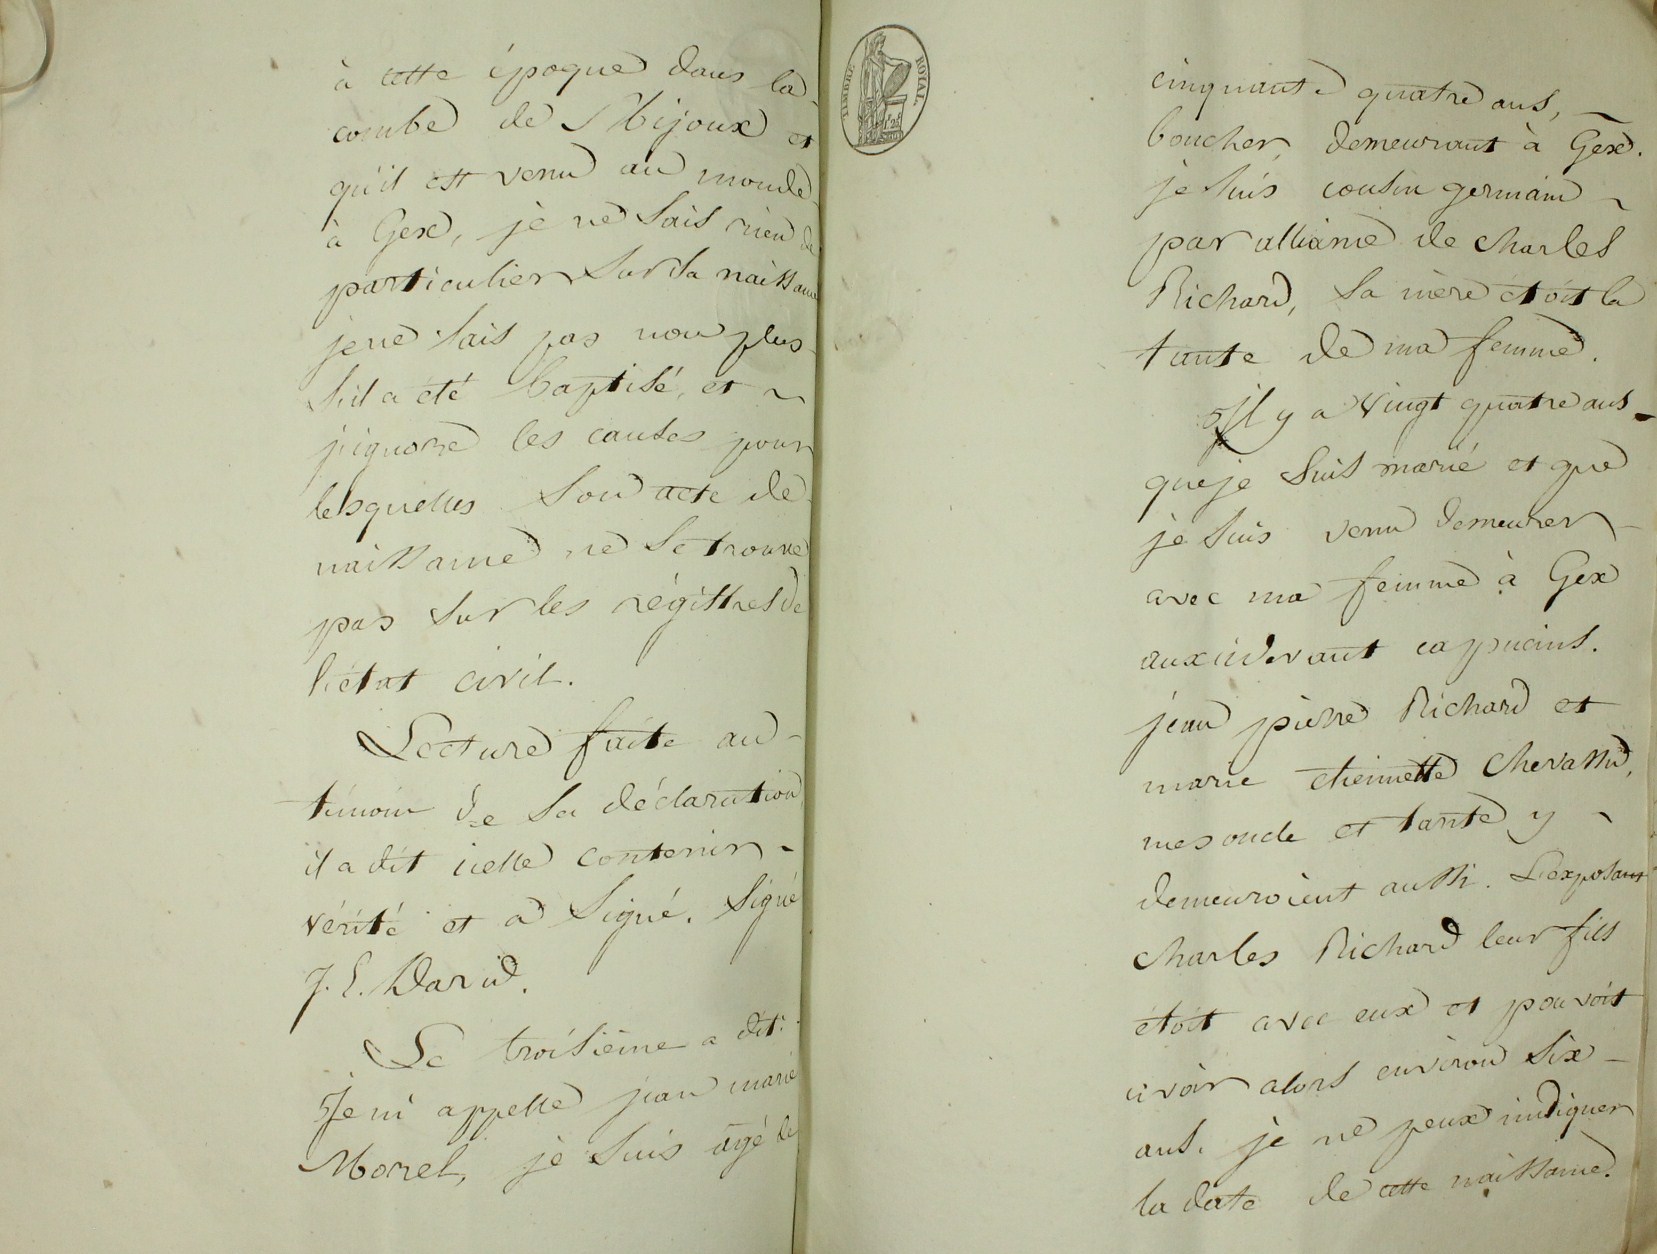 à cette époque dans la
combe de Mijoux et
qu'il est venu au monde
à Gex, je ne sais rien de
particulier sur la naissance
je ne sais pas non plus
s'il a été baptisé, et ~
j'ignore les causes pour
lesquelles son acte de
naissance ne se trouve
pas sur les régistres de
l'état civil.
Lecture faite au
témoin de sa déclaration,
il a dit icelle contenir ~
vérité et a signé. Signé
J. E. David.
Le troisième a dit:
Je m'appelle jean marie
Morel, je suis agé de
TIMBRE ROYAL.
1f 25
cinquante quatre ans, ~
boucher, demeurant à Gex.
je suis cousin germain ~
par alliance de charles
Richard, sa mère étoit la
tante de ma femme.
Il y a vingt quatre ans -
que je suis marié et que
je suis venu demeurer -
avec ma femme à Gex
aux cidevant capucins.
jean pierre Richard et
marie étiennette Chevassu,
mes oncle et tante y ~
demeuroient aussi. L'exposant
charles Richard leur fils
étoit avec eux et pouvoit
avoir alors environ six -
ans. je ne peux indiquer
la date de cette naissance.